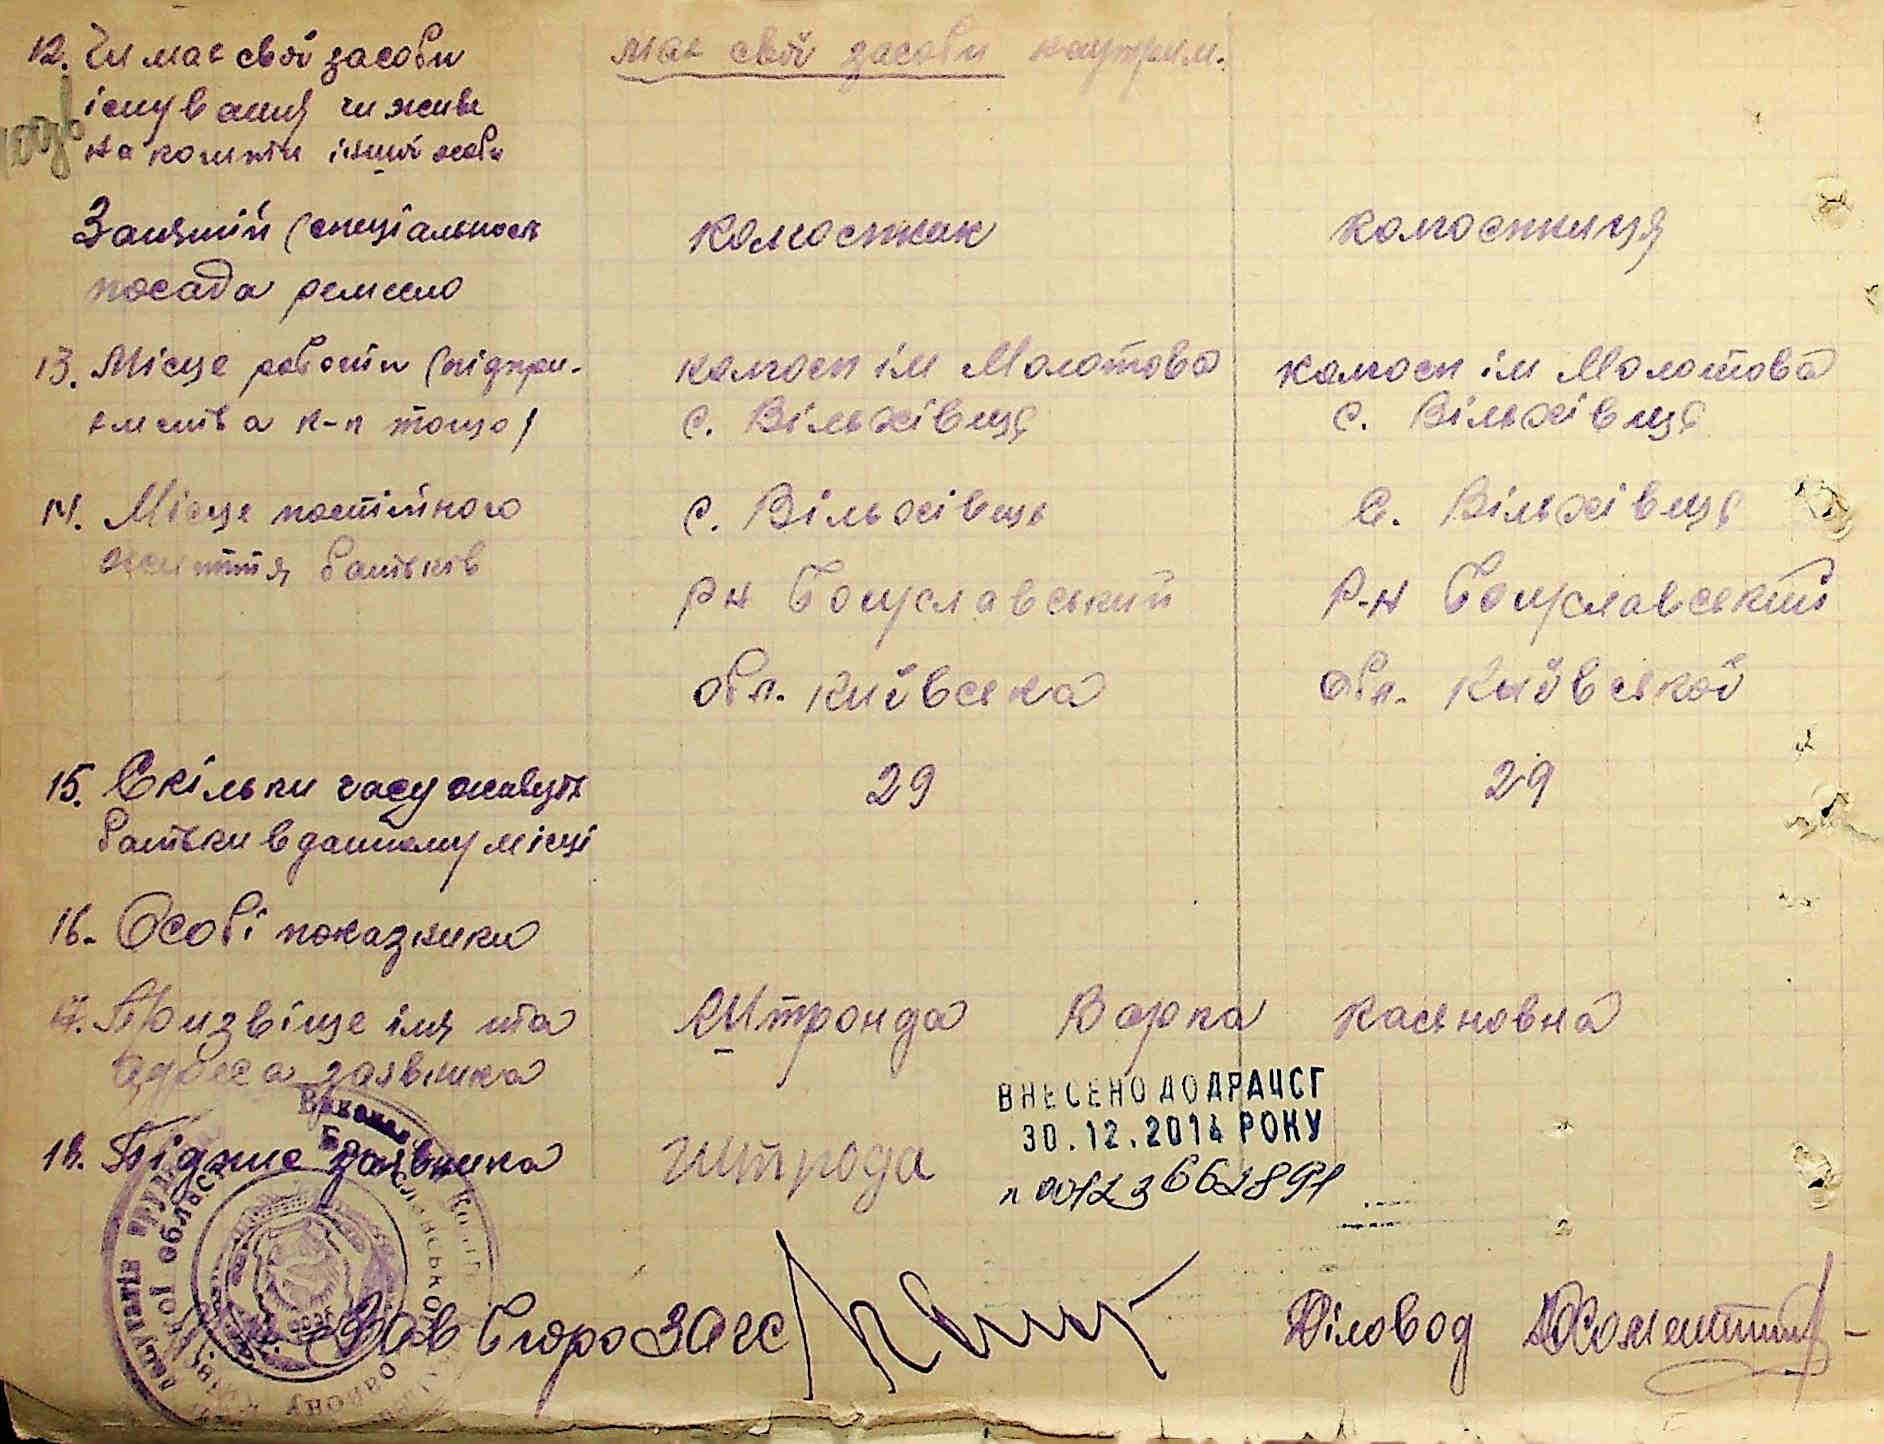 12. Чи має свої засоби має свої засоби на утрим.
існування чи живе
на кошти іншої особи
Заняттій (спеціальность колгоспник колгоспниця
посада ремесло
13. Місце роботи (підпри- колгосп ім Молотова колгосп ім Молотова
ємства к-п тощо) с. Вільхівець с. Вільхівець
14. Місце постійного с. Вільхівець с. Вільхівець
життя батьків
Р-н Богуславський Р-н Богуславський
обл. Київська обл. Київської
15. Скільки часу живуть 29 29
батьки в данному місці
16. Особі показники
17. Призвіще імя та Штронда Варка Касяновна
адреса заявника
ВНЕСЕНО ДО ДРАЦСГ
30.12.2014 РОКУ
18. Підпис заявника Штрода
n 00123662891
Зав Бюро ЗАГС Діловод